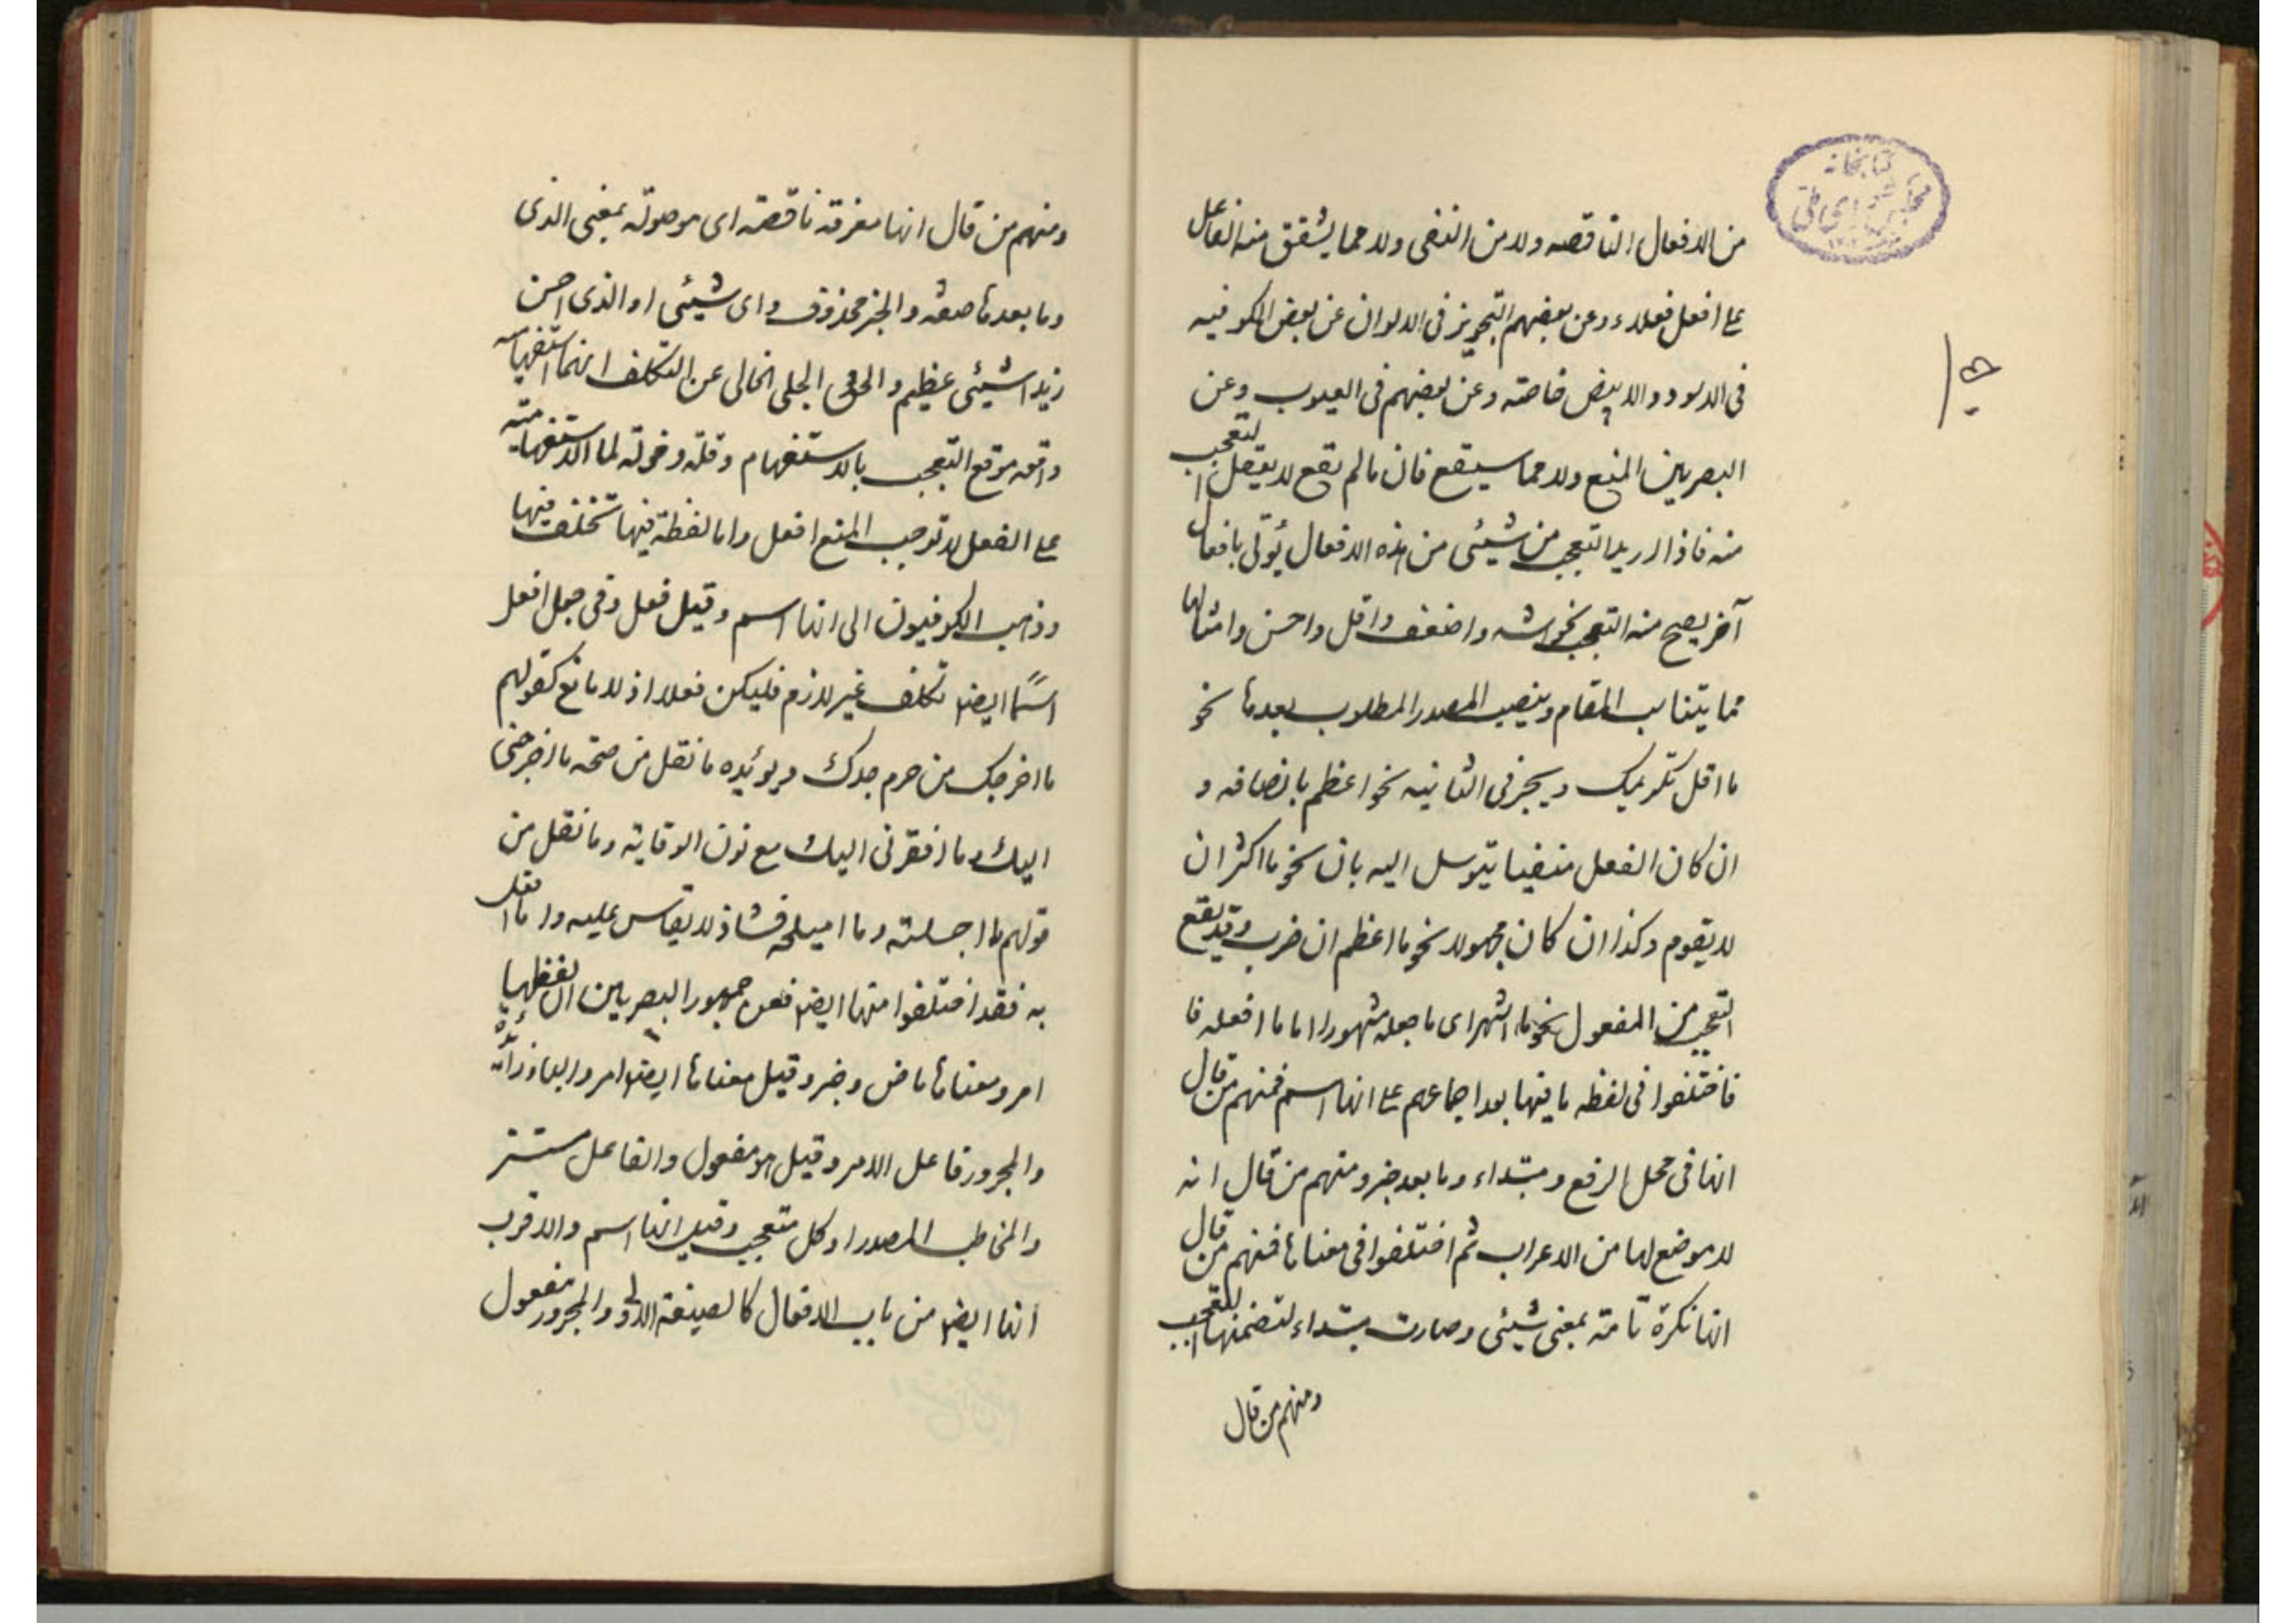 من الافعال الناقصه ولا من النفى ولا مما يشقق منه الفاعل
على افعل فعلاء وعن بعضهم التجويز فى الالوان عن بعض الكوفيه
فى الاسود والابيض خاصته وعن بعضهم فى العيوب وعن
البصريين المنع ولا مما سيقع فان ما لم يقع لا يعقل التعجب
منه فاذا اريد التعجب من شيئى من هذه الافعال يؤتى بافعال
آخر يصح منه التعجب نحو اشد واضعف واقل واحسن وامثالها
مما يتناسب المقام وينصب المصدر المطلوب بعدها نحو
ما اقل تكريمك ويجر فى الثانيه نحو اعظم بانصافه و
ان كان الفعل منفيا يتوسل اليه بان نحو ما اكثر ان
لا يقوم وكذا ان كان مجهولا نحو ما اعظم ان ضرب وقد يقع
التعجب من المفعول نحو ما اشهر اى ما جعله مشهورا اما ما افعله فا
فاختلفوا فى لفظه ما فيها بعد اجماعهم على انها اسم فمنهم من قال
انها فى محل الرفع ومبتداء وما بعد خبر ومنهم من قال انه
لا موضع لها من الاعراب ثم اختلفوا فى معناها فمنهم من قال
انها نكرة تامة بمعنى شيئى وصارت مبتداء لتضمنها التعجب
ومنهم من قال
ومنهم من قال انها معرفة ناقصة اى موصولة بمعنى الذى
وما بعدها صفة والخبر محذوف واى شيئى او الذى احسن
زيدا شيئى عظيم والحق الجلى الخالى عن التكلف انها استفهامية
واقعه موقع التعجب بالاستفهام وقلة دخولة لما الاستفهامية
على الفعل لا توجب المنع افعل واما لفظة فيها تختلف فيها
وذهب الكوفيون الى انها اسم وقيل فعل وفى جعل افعل
اسمًا ايضا تكلف غير لازم فليكن فعلا اذ لا مانع كقولهم
ما اخرجك من حرم جدك ويؤيده ما نقل من صحة ما اخرجنى
اليك وما افقرنى اليك مع نون الوقاية وما نقل من
قولهم ما اجسلته وما اميلحه فشاذ لا يقاس عليه واما افعل
به فقد اختلفوا منها ايضا فعن جمهور البصريين ان لفظها
امر ومعناها ماض وخبر وقيل معناها ايضا امر والباء زائدة
والمجرور فاعل الامر وقيل هو مفعول والفاعل مستتر
والمخاطب المصدر او كل متعجب وقيل انها اسم والاقرب
انها ايضا من باب الافعال كالصيغة الاولى والمجرور مفعول